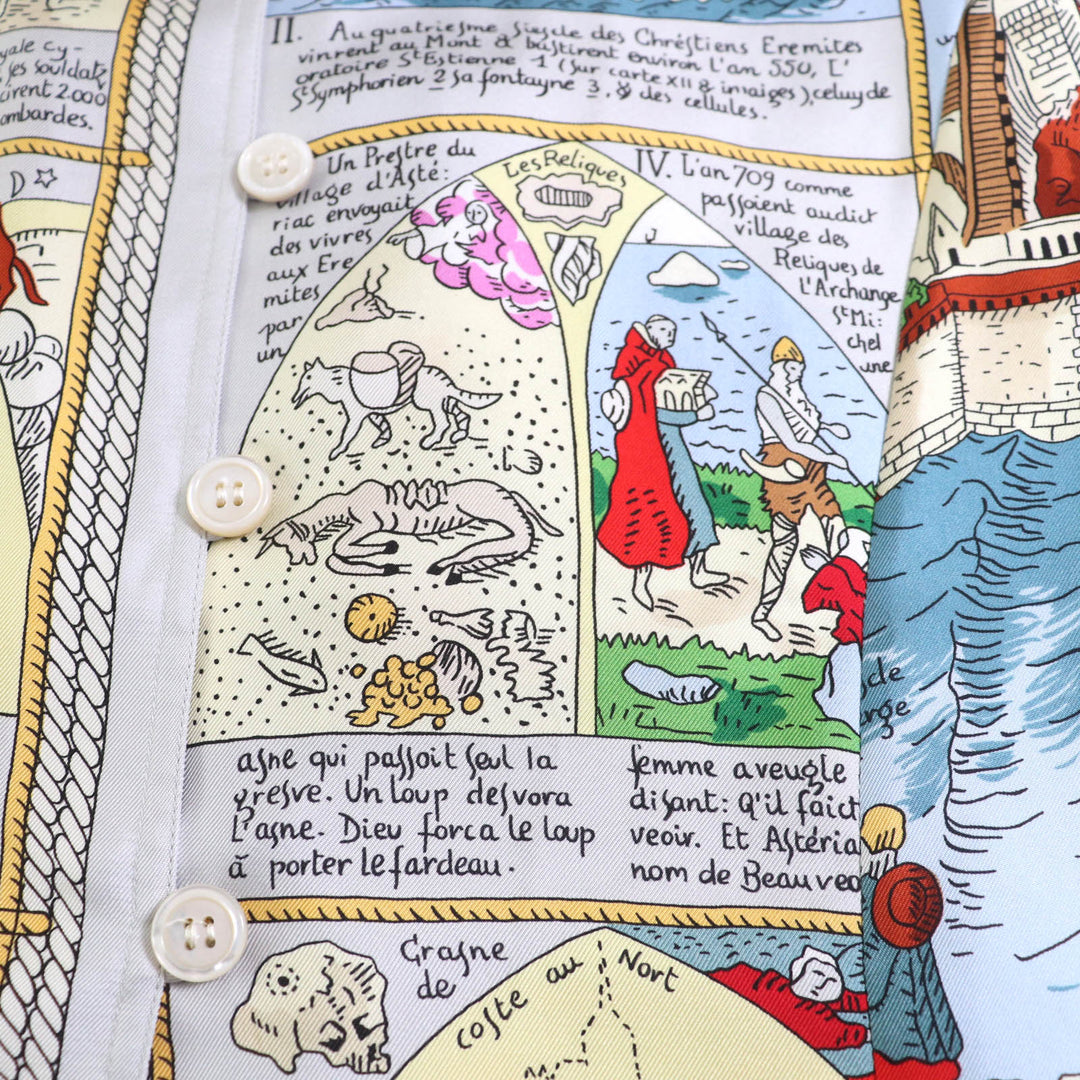 yale Cy-
ses souldatz
cirent 2.000
ombardes.
D
II. Au quatriesme siescle des Chréstiens Eremites
vinrent au Mont & bastirent environ l'an 550, L'
oratoire St Estienne 1 (sur carte XII & imaiges), celuy de
St Symphorien 2 sa fontayne 3, & des cellules.
Un Prestre du
village d'Asté:
riac envoyait
des vivres
aux Ere
mites
par
un
Les Reliques
IV. L'an 709 comme
passoient audict
village des
Reliques de
L'Archange
St Mi:
chel
une
asne qui passoit seul la
gresve. Un loup desvora
L'asne. Dieu forca le loup
à porter le fardeau.
femme aveugle
disant: Q'il faict
veoir. Et Astéria
nom de Beauveo
cle
rge
Crasne
de
coste au Nort